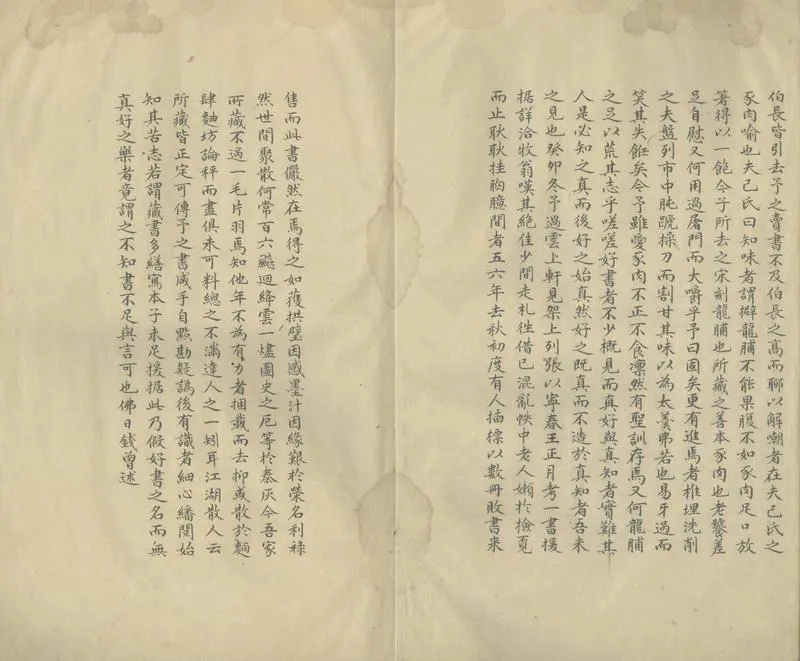 伯長皆引去予之賣書不及伯長之高而聊以解嘲者在夫己氏之
豕肉喻也夫己氏曰知味者謂擗龍脯不能果腹不如豕肉足口放
箸得以一飽今子所去之宋刻龍脯也所藏之善本豕肉也老饕差
足自慰又何用過屠門而大嚼乎予曰固矣更有進焉者椎埋洗削
之夫盤列市中肫蹏操刀而割甘其味以為太羹弗若也易牙過而
笑其失飪矣今予雖愛豕肉不正不食凜然有聖訓存焉又何龍脯
之足以荒其志乎嗟嗟好書者不少概見而真好與真知者實難其
人是必知之真而後好之始真然好之既真而不造於真知者吾未
之見也癸卯冬予過雲上軒見架上列張以寧春王正月考一書援
据詳洽牧翁嘆其絕佳少間走札徃借已混亂帙中老人嬾於撿覓
而止耿耿挂胸臆間者五六年去秋初度有人插標以數冊敗書来
售而此書儼然在焉得之如獲拱璧因感墨汁因緣艱於榮名利祿
然世間聚散何常百六飈迴絳雲一燼圖史之厄等於秦灰今吾家
所藏不過一毛片羽焉知他年不為有力者捆載而去抑或散於麵
肆麯坊論秤而盡俱未可料總之不滿達人之一矧耳江湖散人云
所藏皆正定可傳予之書咸手自點勘疑譌後有識者細心繙閱始
知其苦志若謂藏書多繕寫本子未足援据此乃假好書之名而無
真好之樂者竟謂之不知書不足與言可也佛日錢曾述